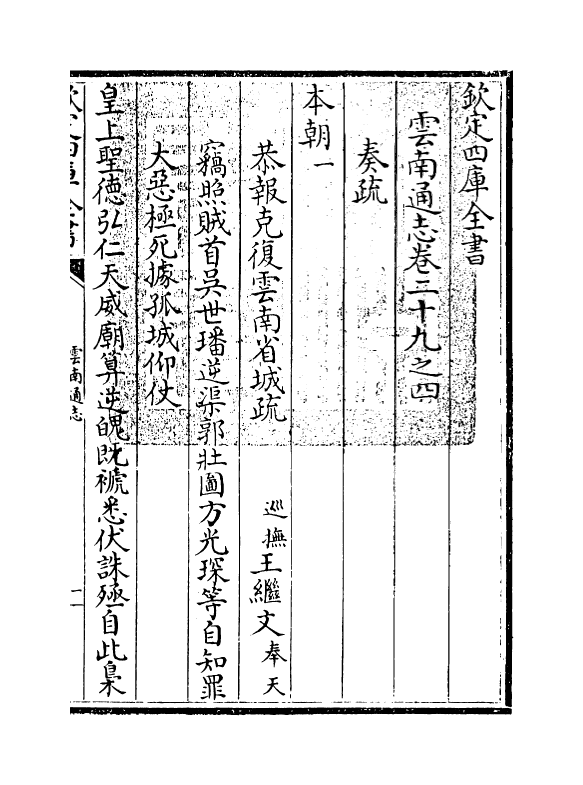 欽定四庫全書
雲南通志卷三十九之四
奏疏
本朝一
恭報克復雲南省城疏 巡撫王繼文奉天
竊照賊首吳世璠逆渠郭壯圖方光琛等自知罪
大惡極死據孤城仰仗
皇上聖德弘仁天威廟算逆魄既褫悉伏誅殛自此梟
雲南通志